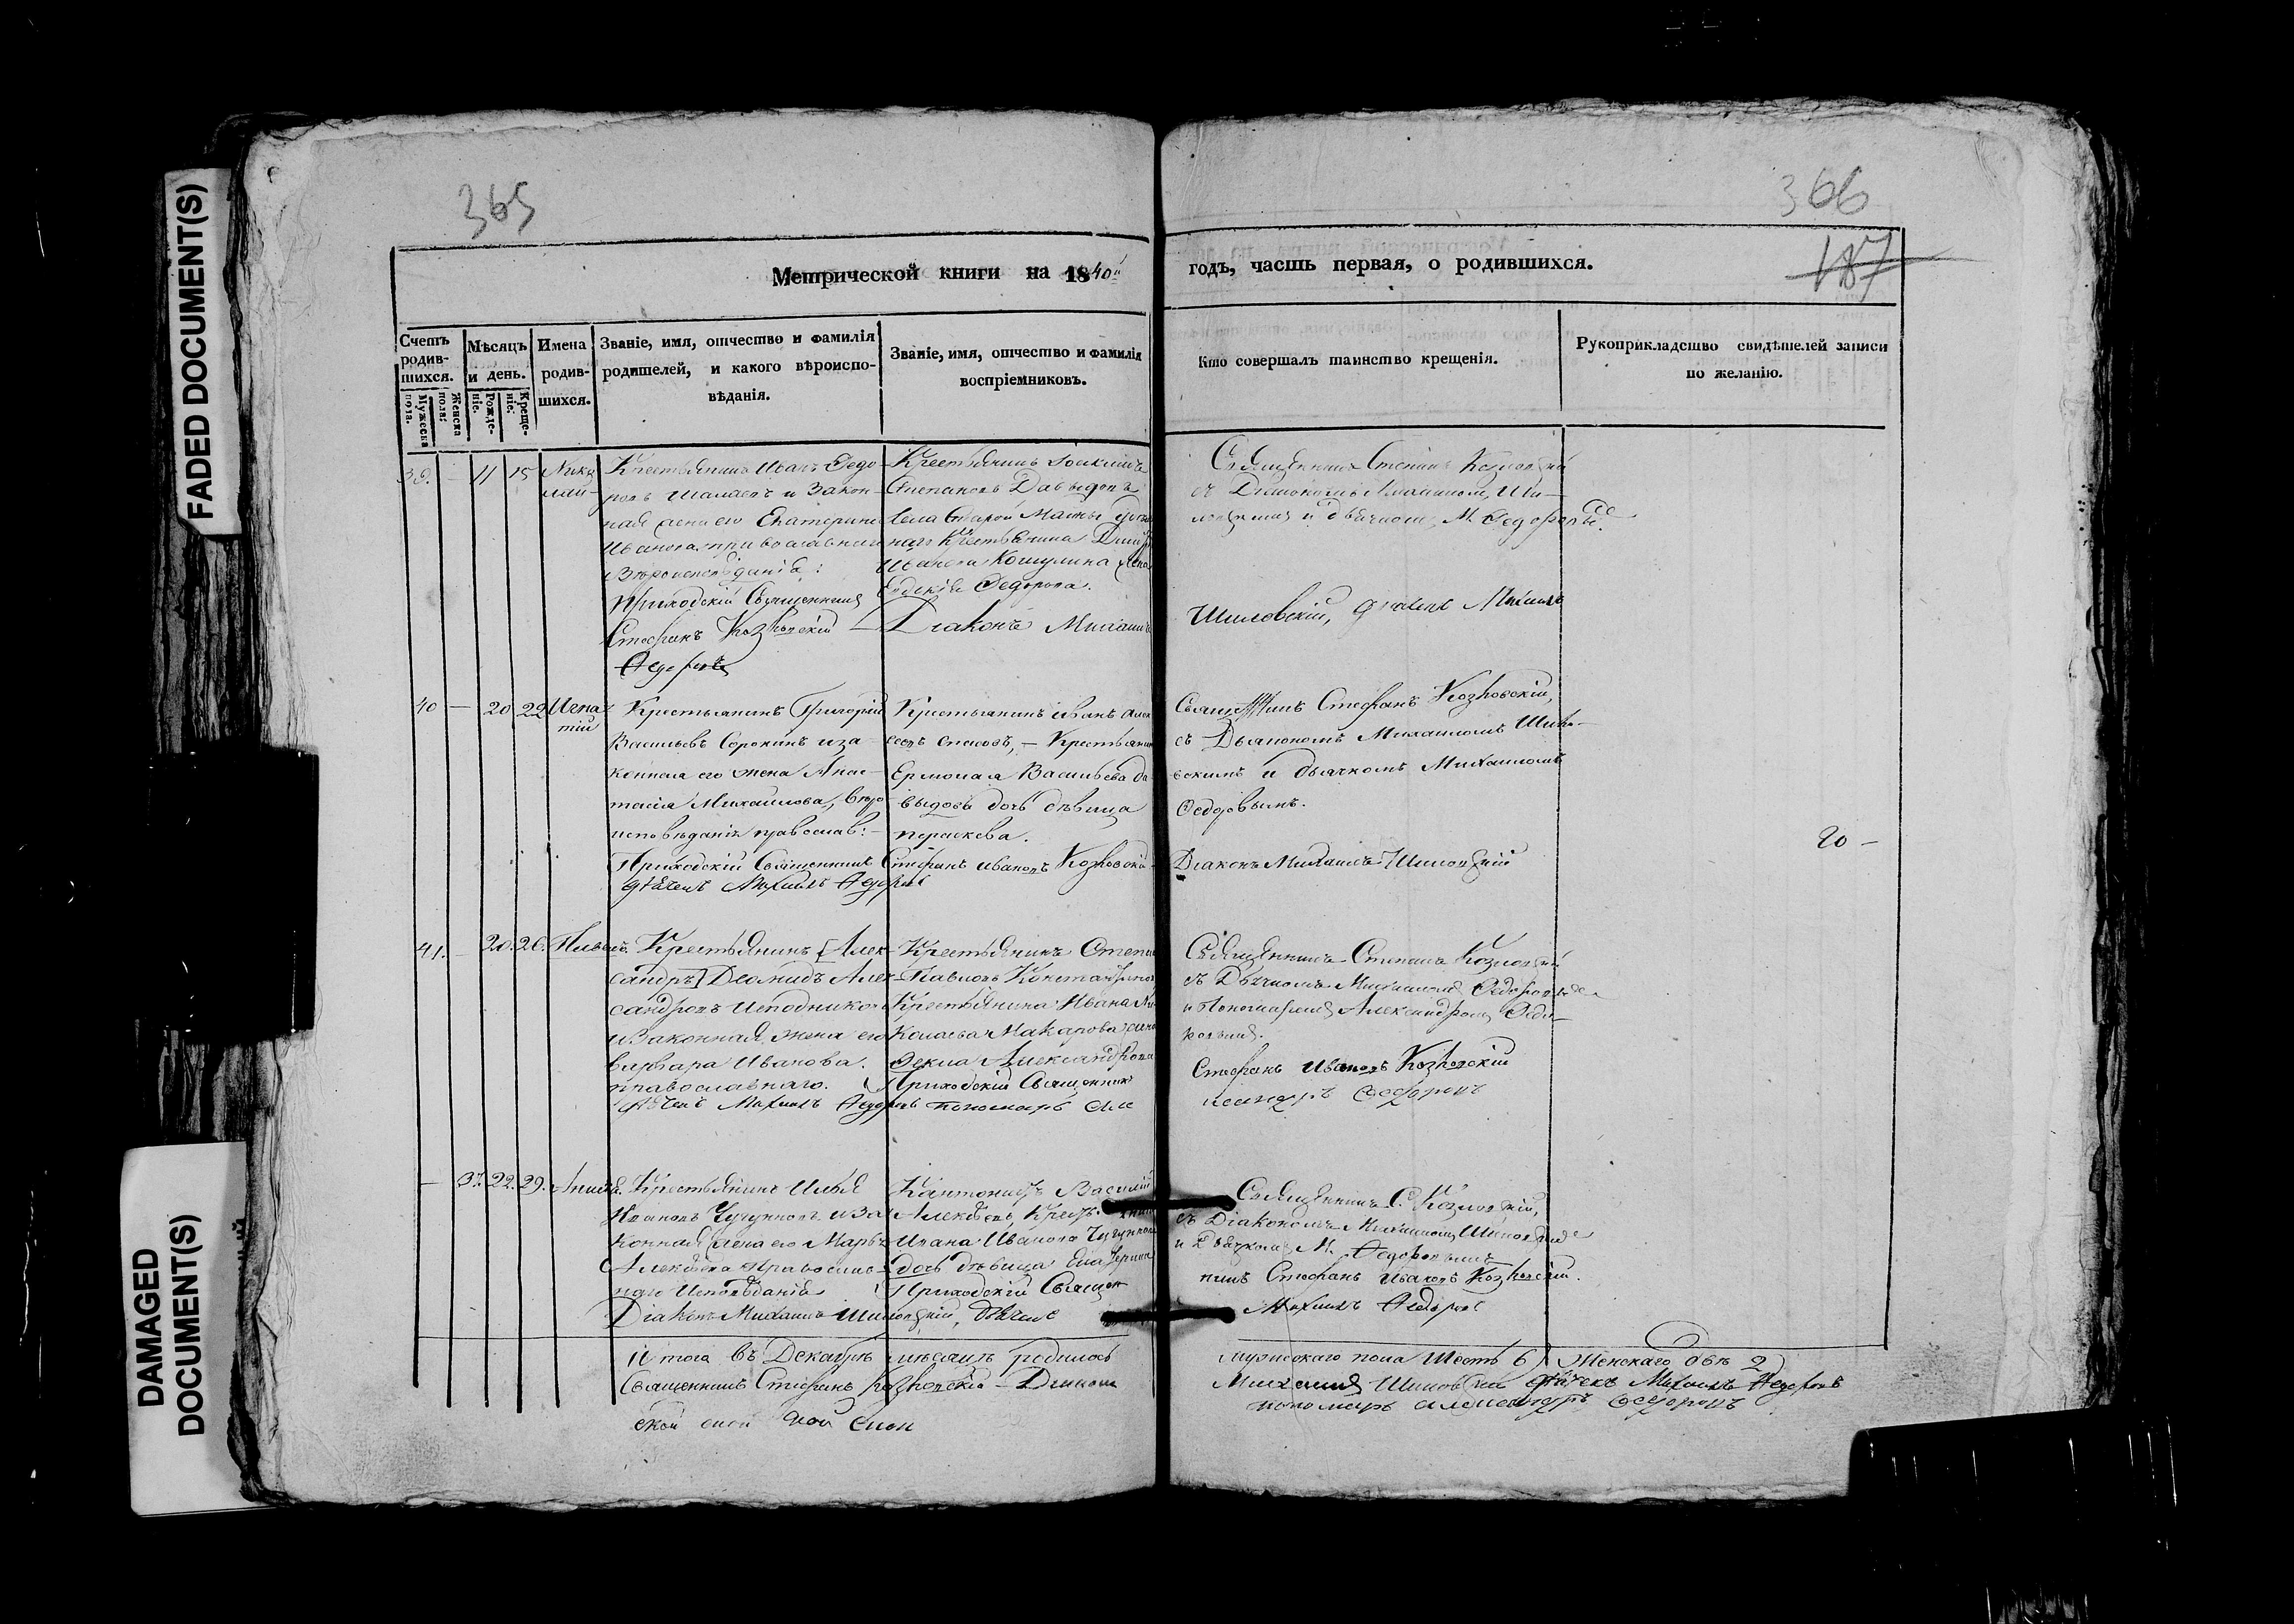 FADED DOCUMENT(S)
DAMAGED
DOCUMENT(S)
365
366
187
Метрической книги на 1840
годъ, часть первая, о родившихся.
Счетъ родив-шихся.
Мужеска пола.
Женска пола.
Мѣсяцъ и день.
Рожде-ніе.
Креще-ніе.
Имена родив-шихся.
Званіе, имя, отчество и фамилія
родителей, и какого вѣроиспо-
вѣданія.
Званіе, имя, отчество и фамилія
воспріемниковъ.
Кто совершалъ таинство крещенія.
Рукоприкладство свидѣтелей записи
по желанію.
39. — 11 15
Крестьянинъ Иванъ Федо-
ровъ и закон-
ная жена его Екатерина
Иванова православнаго
Вѣроисповѣданія:
Приходскій Священникъ
Стефанъ Козловскій —
Федоровъ
Крестьянинъ
Степановъ Давыдовъ
Села Старой
Крестьянина
Иванова жена
Евдокія Федорова.
Діаконъ Михаилъ
Священникъ Стефанъ Козловскій
съ Діакономъ Михаиломъ Ши-
ловскимъ и дьячкомъ М. Федоровымъ.
Шиловскій, дьячекъ Михаилъ
40 — 20 22 Игна
тій
Крестьянинъ Григорій
Васильевъ Сорокинъ и за-
конная его жена Анас-
тасія Михайлова, вѣро-
исповѣданія православ:
Приходскій Священникъ Стефанъ Ивановъ Козловскій
дьячекъ Михаилъ Федоровъ
Крестьянинъ Иванъ Алек
— Крестьянина
Ермолая Васильева Да-
выдова дочь дѣвица
Параскева.
Священникъ Стефанъ Козловскій,
съ Дьякономъ Михаиломъ Шило-
вскимъ и дьячкомъ Михаиломъ
Федоровымъ.
Діаконъ Михаилъ Шиловскій
20 —
41. — 20. 26.
Крестьянинъ [Алек-
сандръ] Деомидъ Алек-
сандровъ
и Законная жена его
Варвара Иванова.
православнаго.
дьячекъ Михаилъ Федоровъ
Крестьянинъ Степанъ
Павловъ
Крестьянина Ивана Ни-
колаева Макарова жена
Фекла Александрова
Приходскій Священникъ
пономарь Але
Священникъ Стефанъ Козловскій
съ Дьячкомъ Михаиломъ Федоровымъ
и Пономаремъ Александромъ Федо-
ровымъ.
Стефанъ Ивановъ Козловскій
ксандръ Федоровъ
— 37. 22. 29. Анисья.
Крестьянинъ Илья
Ивановъ Чугуновъ и За-
конная жена его Марья
Алексѣева Православ-
наго Исповѣданія
Діаконъ Михаилъ Шиловскій, дьячекъ
Кантонистъ Василій
Алексѣевъ, Крест.
Ивана Иванова Чугунова
дочь дѣвица Екатерина
Приходскій Священ
Священникъ С. Козловскій,
съ Діакономъ Михаиломъ Шиловскимъ
и Дьячкомъ М. Федоровымъ
никъ Стефанъ Ивановъ Козловскій.
Михаилъ Федоровъ
Итого въ Декабрѣ мѣсяцѣ родилось
мужескаго пола Шесть 6) Женскаго двѣ 2)
Священникъ Стефанъ Козловскій — Діаконъ
Михаилъ Шиловскій дьячекъ Михаилъ Федоровъ
пономарь Александръ Федоровъ